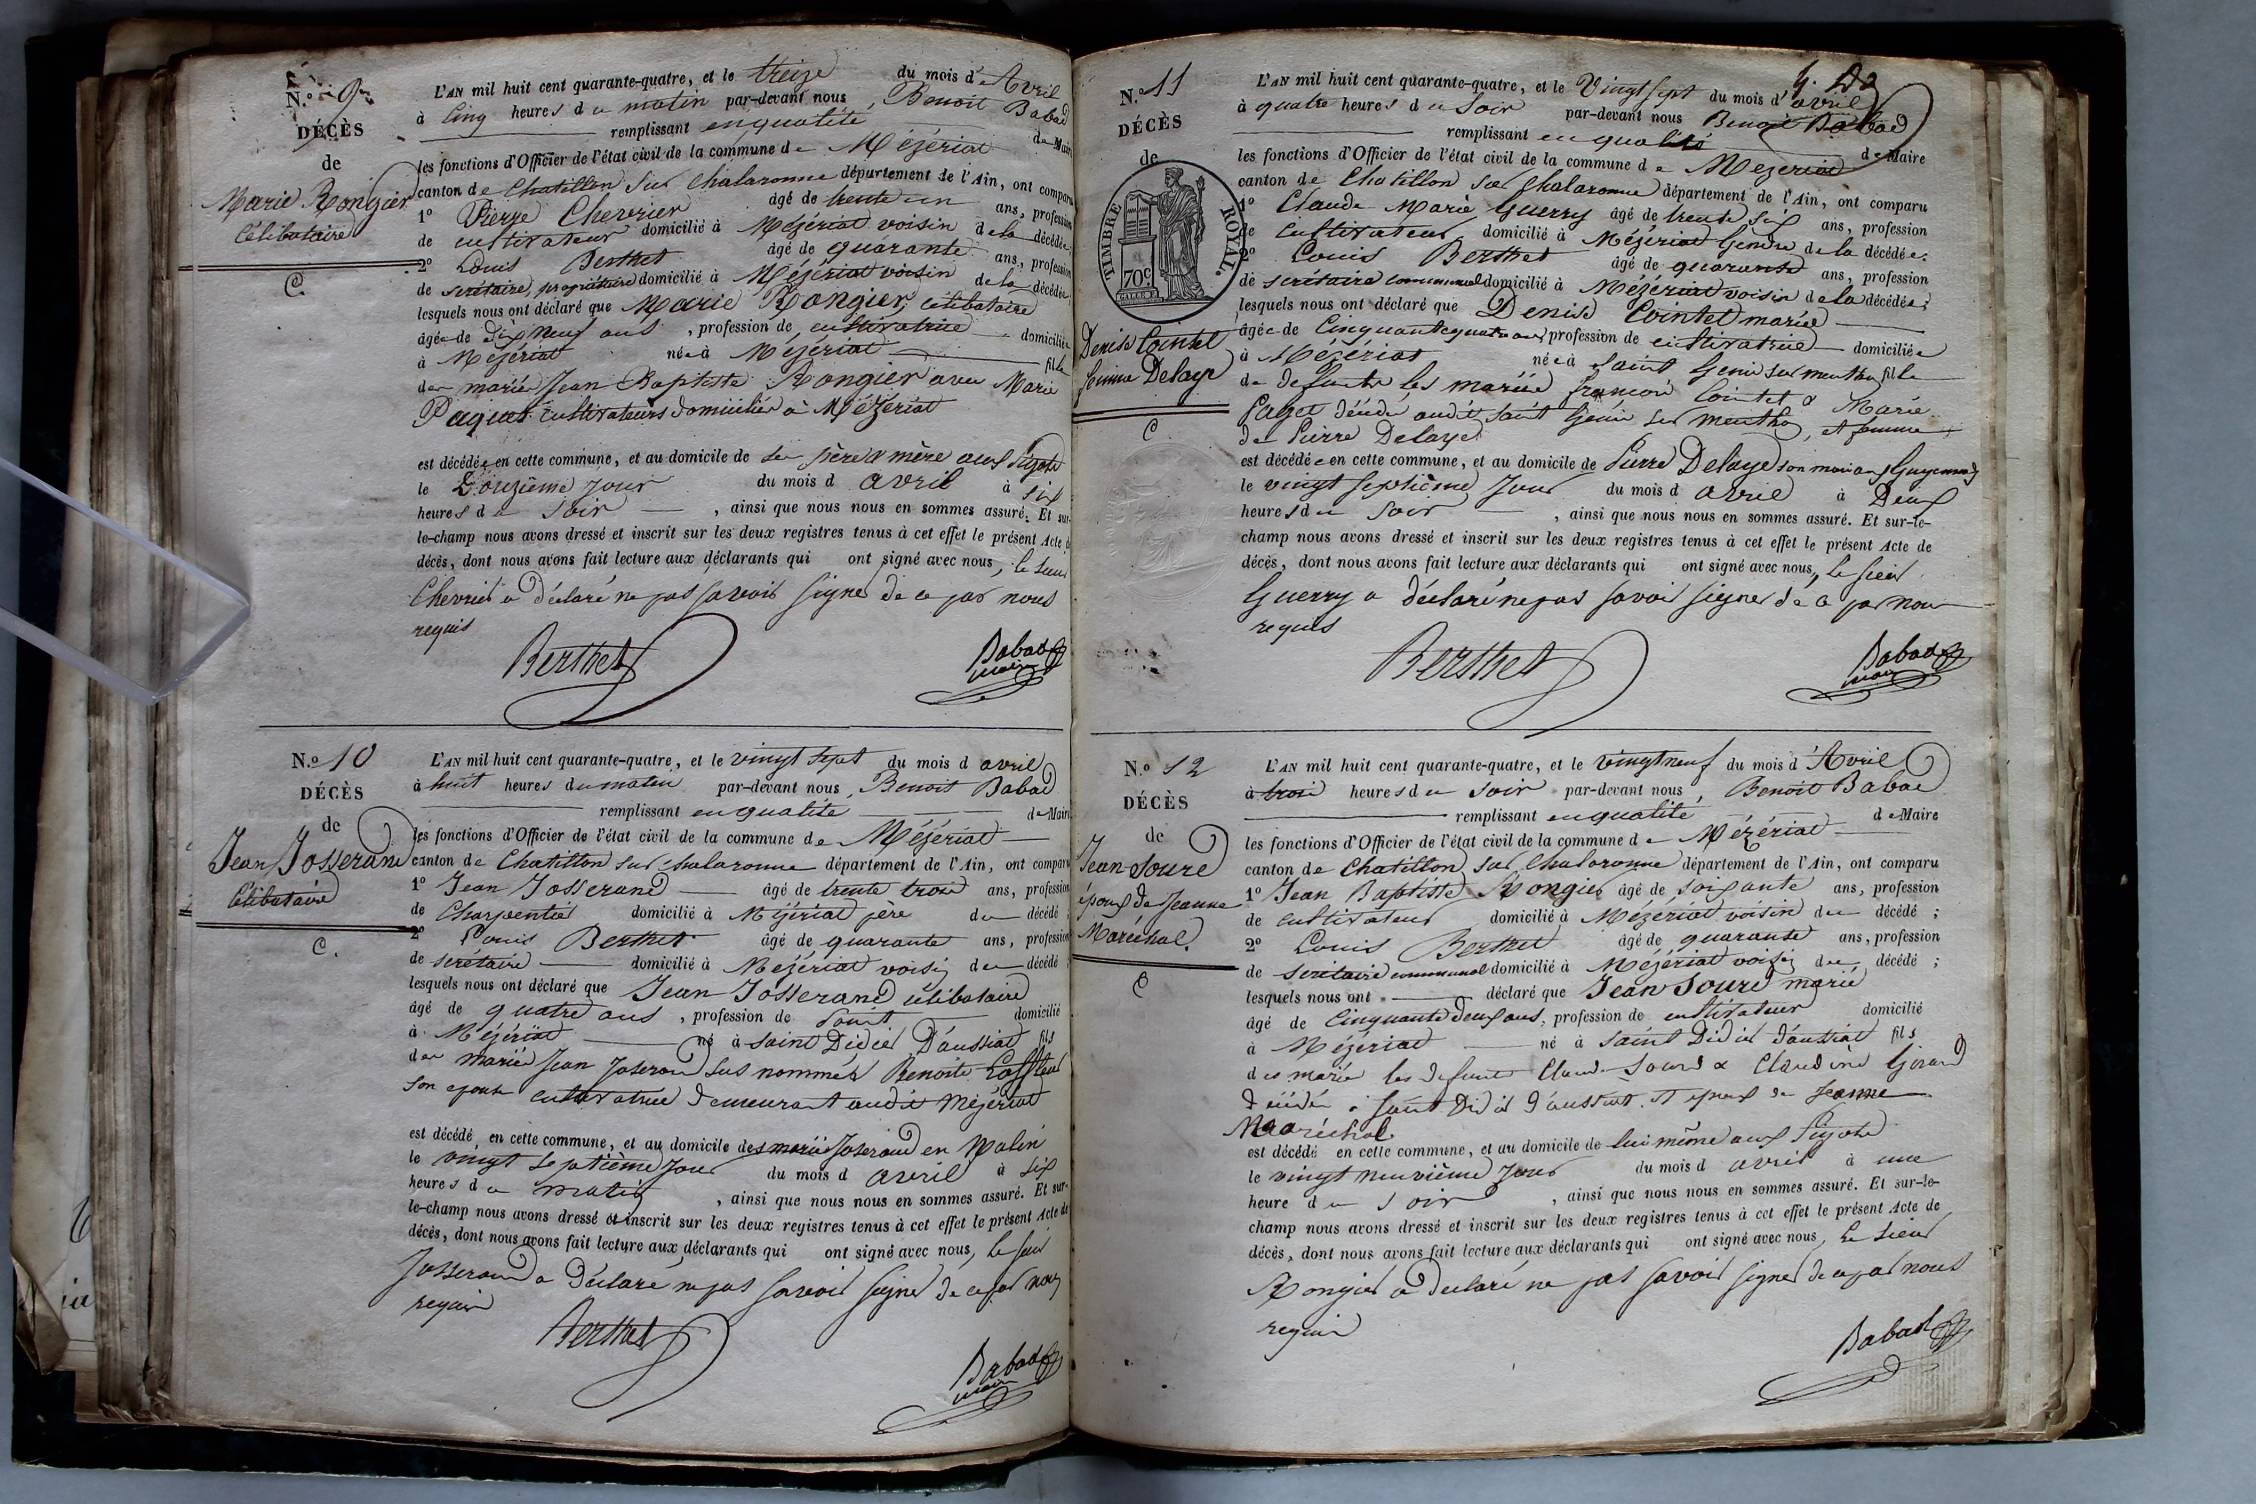 N.º 9
DÉCÈS
de
Marie Rongier
Célibataire
C.
L'AN mil huit cent quarante-quatre, et le treize du mois d'Avril
à Cinq heures du matin par-devant nous, Benoit Babad
remplissant en qualité de Maire
les fonctions d'Officier de l'état civil de la commune de Mézériat
canton de Chatillon sur Chalaronne département de l'Ain, ont comparu
1º Pierre Chevrier âgé de trente un ans, profession
de cultivateur domicilié à Mézériat voisin de la décédée
2º Louis Berthet âgé de quarante ans, profession
de secrétaire, propriétaire domicilié à Mézériat voisin de la décédée,
lesquels nous ont déclaré que Marie Rongier, célibataire
âgée de dix neuf ans, profession de cultivatrice domiciliée
à Mézériat née à Mézériat fille
des mariés Jean Baptiste Rongier avec Marie
Paquet cultivateurs domiciliés à Mézériat
est décédée en cette commune, et au domicile de ses père & mère aux
le Douzième jour du mois d avril à six
heures du soir, ainsi que nous nous en sommes assuré. Et sur-
le-champ nous avons dressé et inscrit sur les deux registres tenus à cet effet le présent Acte de
décès, dont nous avons fait lecture aux déclarants qui ont signé avec nous, le sieur
Chevrier a déclaré ne pas savoir signer de ce par nous
requis
Berthet
Babad
maire
N.º 10
DÉCÈS
de
Jean Josserand
Célibataire
C.
L'AN mil huit cent quarante-quatre, et le vingt sept du mois d avril
à huit heures du matin par-devant nous, Benoit Babad
remplissant en qualité de Maire
les fonctions d'Officier de l'état civil de la commune de Mézériat
canton de Chatillon sur chalaronne département de l'Ain, ont comparu
1º Jean Josserand âgé de trente trois ans, profession
de Charpentier domicilié à Mézériat père du décédé ;
2º Louis Berthet âgé de quarante ans, profession
de secrétaire domicilié à Mézériat voisin du décédé ;
lesquels nous ont déclaré que Jean Josserand célibataire
âgé de quatre ans, profession de domicilié
à Mézériat né à Saint Didier D'aussiat fils
des mariés Jean Joserand sus nommé & Benoite
son epouse cultivatrice demeurant audit Mézériat
est décédé en cette commune, et au domicile des mariés Joserand en Malin
le vingt septième jour du mois d avril à six
heures du matin, ainsi que nous nous en sommes assuré. Et sur-
le-champ nous avons dressé et inscrit sur les deux registres tenus à cet effet le présent Acte de
décès, dont nous avons fait lecture aux déclarants qui ont signé avec nous, le sieur
Josserand a déclaré ne pas savoir signer de ce par nous
requis
Berthet
Babad
maire
N.º 11
DÉCÈS
de
TIMBRE ROYAL.
70 c
Denise Cointet
femme Delaye
C
L'AN mil huit cent quarante-quatre, et le Vingt sept du mois d'avril
à quatre heures du Soir par-devant nous Benoit Babad
remplissant en qualité de Maire
les fonctions d'Officier de l'état civil de la commune de Mezeriat
canton de Chatillon sur Chalaronne département de l'Ain, ont comparu
1º Claude Marie Guerry âgé de trente six ans, profession
de cultivateur domicilié à Mézériat Gendre de la décédée.
2º Louis Berthet âgé de quarante ans, profession
de secrétaire communal domicilié à Mézériat voisin de la décédée ;
lesquels nous ont déclaré que Denise Cointet mariée
âgée de Cinquante quatre ans profession de cultivatrice domiciliée
à Mézériat née à Saint Genis sur menthon fille
de defunts les mariés françois Cointet & Marie
Paget décédés audit saint Genis sur menthon, et femme
de Pierre Delaye
est décédée en cette commune, et au domicile de Pierre Delaye son mari aux
le vingt septième jour du mois d avril à Deux
heures du Soir, ainsi que nous nous en sommes assuré. Et sur-le-
champ nous avons dressé et inscrit sur les deux registres tenus à cet effet le présent Acte de
décès, dont nous avons fait lecture aux déclarants qui ont signé avec nous, le sieur
Guerry a déclaré ne pas savoir signer de ce par nous
requis
Berthet
Babad
maire
N.º 12
DÉCÈS
de
Jean Sourd
époux de Jeanne
Maréchal.
C
L'AN mil huit cent quarante-quatre, et le vingt neuf du mois d'Avril
à trois heures du soir par-devant nous, Benoit Babad
remplissant en qualité de Maire
les fonctions d'Officier de l'état civil de la commune de Mézériat
canton de Chatillon sur Chalaronne département de l'Ain, ont comparu
1º Jean Baptiste Rongier âgé de soixante ans, profession
de cultivateur domicilié à Mézériat voisin du décédé ;
2º Louis Berthet âgé de quarante ans, profession
de secrétaire communal domicilié à Mézériat voisin du décédé ;
lesquels nous ont déclaré que Jean Sourd marié
âgé de Cinquante deux ans, profession de cultivateur domicilié
à Mézériat né à saint Didier d'aussiat fils
des mariés les defunts Claude Sourd & Claudine
décédés à saint Didier d'aussiat. et epoux de Jeanne
Maréchal
est décédé en cette commune, et au domicile de lui même aux
le vingt neuvième jour du mois d avril à une
heure du soir, ainsi que nous nous en sommes assuré. Et sur-le-
champ nous avons dressé et inscrit sur les deux registres tenus à cet effet le présent Acte de
décès, dont nous avons fait lecture aux déclarants qui ont signé avec nous, le sieur
Rongier a déclaré ne pas savoir signer de ce par nous
requis
Babad